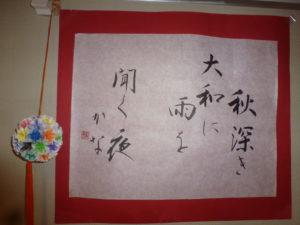 秋深き
大和に
雨を
聞く夜
かな